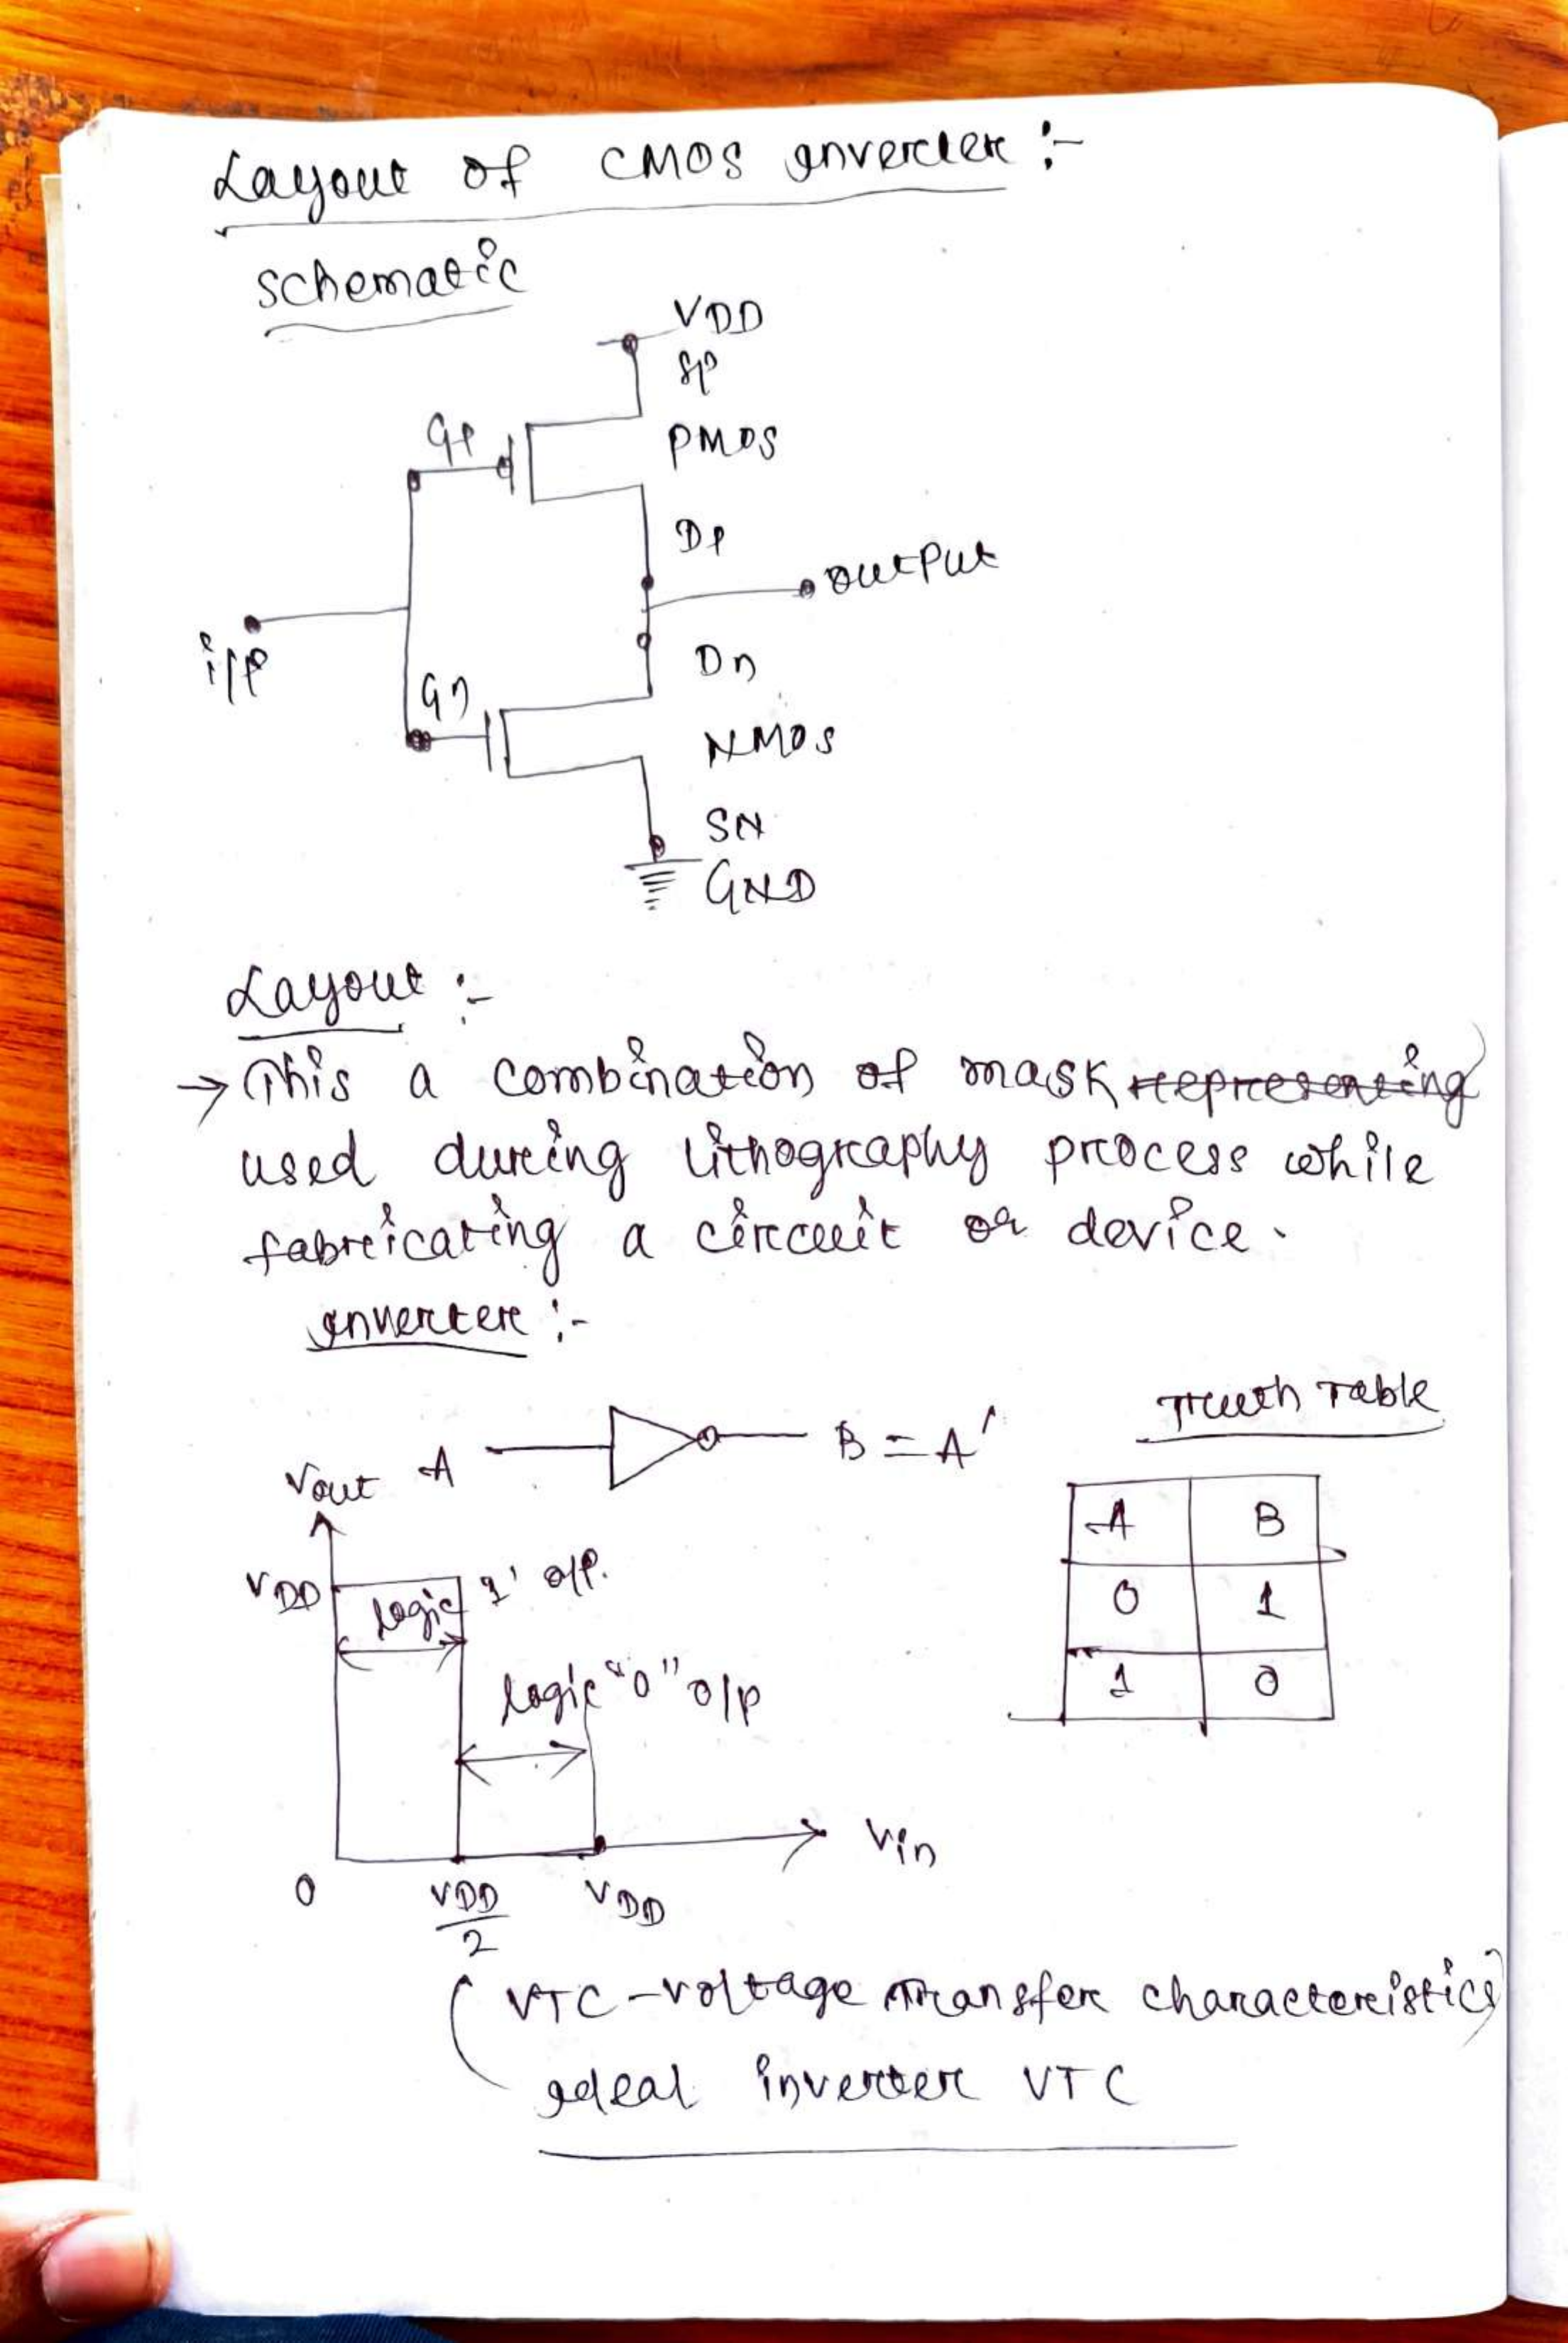 Layout of CMOS inverter :-
schematic
VDD
Sp
Gp
PMOS
Dp
output
i/p
Dn
Gn
NMOS
SN
GND
Layout :-
→ This a combination of mask representing
used during lithography process while
fabricating a circuit or device.
inverter :-
Truth Table
A B = A'
Vout
A B
VDD logic 1' o/p.
0 1
logic "0" o/p
1 0
Vin
0 VDD/2 VDD
(VTC - voltage transfer characteristics)
ideal inverter VTC